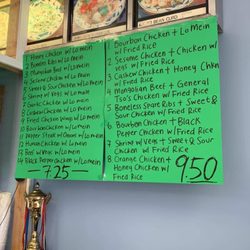 1 Honey Chicken w/Lo mein
2 Boneless Ribs w/Lo mein
3 Mongolian Beef w/Lo mein
4 Sesame Chicken w/Lo mein
5 Sweet & Sour Chicken w/Lo mein
6 Shrimp w/ Veg. w/Lo mein
7 Garlic Chicken w/Lo mein
8 Cashew Chicken w/Lo mein
9 Fried Chicken Wing w/Lo mein
10 Bourbon Chicken w/Lo mein
11 Pepper Steak w/Onion w/Lo mein
12 Hunan Chicken w/Lo mein
13 Beef w/ w/Lo mein
14 Black Pepper Chicken w/Lo mein
7.25
Bourbon Chicken + Lo Mein
w/ Fried Rice
2 Sesame Chicken + Chicken w/
Veg w/ Fried Rice
3 Cashew Chicken + Honey Chkn
w/ Fried Rice
4 Mongolian Beef + General
Tso's Chicken w/ Fried Rice
5 Boneless Spare Ribs + Sweet &
Sour Chicken w/ Fried Rice
6 Bourbon Chicken + Black
Pepper Chicken w/ Fried Rice
7 Shrimp w/ Veg + Sweet & Sour
Chicken w/ Fried Rice
8 Orange Chicken +
Honey Chicken w/
Fried Rice
9.50